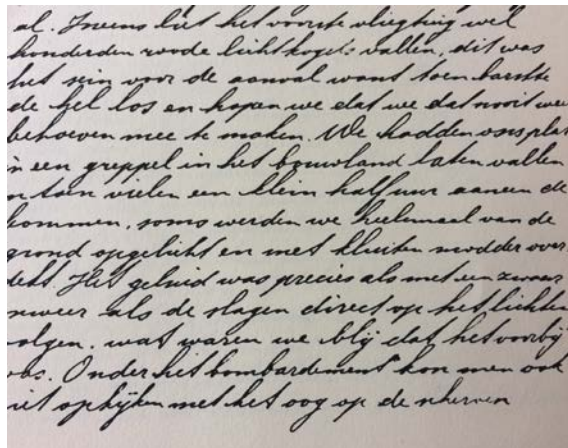 al. Ineens liet het voorste vliegtuig wel
honderden roode lichtkogels vallen, dit was
het sein voor de aanval want toen barstte
de hel los en hopen we dat we dat nooit wee
behoeven mee te maken. We hadden ons plat
in een greppel in het bouwland laten vallen
n toen vielen een klein half uur aaneen de
bommen, soms werden we heelemaal van de
grond opgelicht en met kluiten modder over
dekt. Het geluid was precies als met een zwaar
nweer als de slagen direct op het lichten
olgen. wat waren we blij dat het voorbij
was. Onder het bombardement kon men ook
iet opkijken met het oog op de scherven